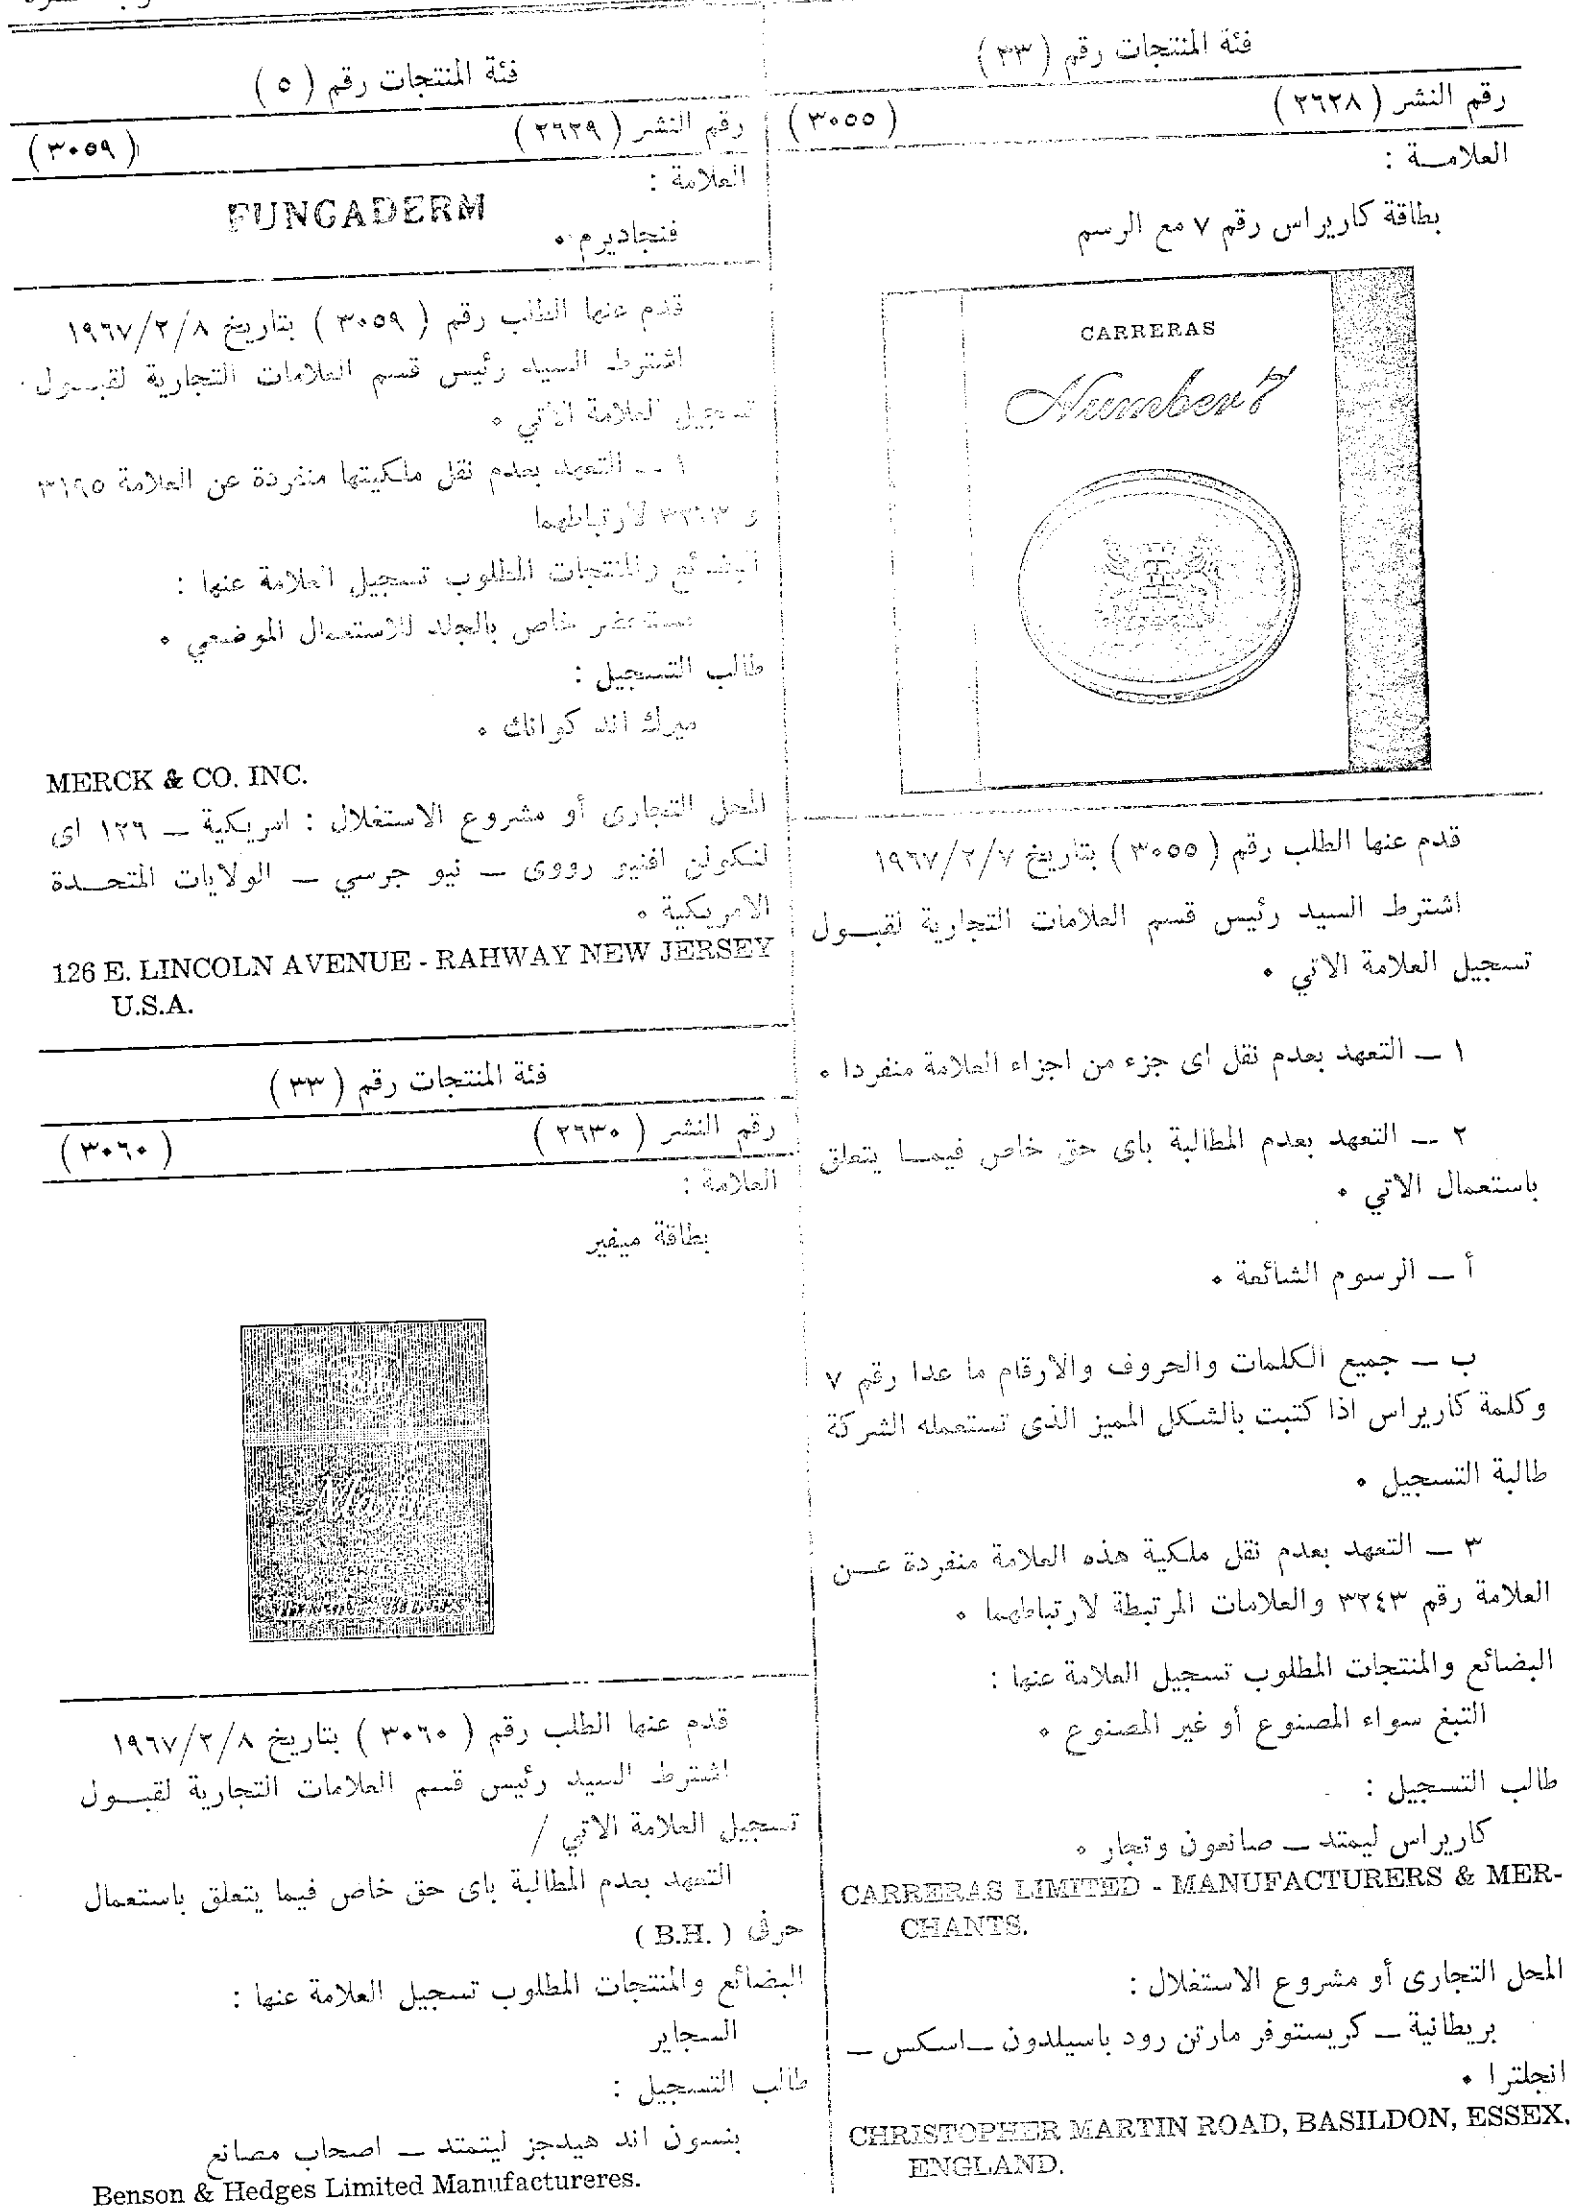 فئة المنتجات رقم ( ٣٣ )
رقم النشر ( ٢٦٢٨ ) ( ٣٠٥٥ )
العلامـة :
بطاقة كاريراس رقم ٧ مع الرسم
CARRERAS
Number 7
قدم عنها الطلب رقم ( ٣٠٥٥ ) بتاريخ ١٩٦٧/٢/٧
اشترط السيد رئيس قسم العلامات التجارية لقبـول
تسجيل العلامة الاتي ٠
١ ــ التعهد بعدم نقل اى جزء من اجزاء العلامة منفردا ٠
٢ ــ التعهد بعدم المطالبة باى حق خاص فيمـا يتعلق
باستعمال الاتي ٠
أ ــ الرسوم الشائعة ٠
ب ــ جميع الكلمات والحروف والارقام ما عدا رقم ٧
وكلمة كاريراس اذا كتبت بالشكل المميز الذى تستعمله الشركة
طالبة التسجيل ٠
٣ ــ التعهد بعدم نقل ملكية هذه العلامة منفردة عـن
العلامة رقم ٣٢٤٣ والعلامات المرتبطة لارتباطهما ٠
البضائع والمنتجات المطلوب تسجيل العلامة عنها :
التبغ سواء المصنوع أو غير المصنوع ٠
طالب التسجيل :
كاريراس ليمتد ــ صانعون وتجار ٠
CARRERAS LIMITED - MANUFACTURERS & MER-
CHANTS.
المحل التجارى أو مشروع الاستغلال :
بريطانية ــ كريستوفر مارتن رود باسيلدون ــ اسكس ــ
انجلترا ٠
CHRISTOPHER MARTIN ROAD, BASILDON, ESSEX,
ENGLAND.
فئة المنتجات رقم ( ٥ )
رقم النشر ( ٢٦٢٩ ) ( ٣٠٥٩ )
العلامة :
FUNGADERM
فنجاديرم ٠
قدم عنها الطلب رقم ( ٣٠٥٩ ) بتاريخ ١٩٦٧/٢/٨
اشترط السيد رئيس قسم العلامات التجارية لقبـول
تسجيل العلامة الاتي ٠
١ ــ التعهد بعدم نقل ملكيتها منفردة عن العلامة ٣١٩٥
و لارتباطهما
البضائع والمنتجات المطلوب تسجيل العلامة عنها :
مستحضر خاص بالجلد للاستعمال الموضعي ٠
طالب التسجيل :
ميرك اند كو انك ٠
MERCK & CO. INC.
المحل التجارى أو مشروع الاستغلال : امريكية ــ ١٢٦ اى
لنكولن افنيو رووى ــ نيو جرسي ــ الولايات المتحـدة
الامريكية ٠
126 E. LINCOLN AVENUE - RAHWAY NEW JERSEY
U.S.A.
فئة المنتجات رقم ( ٣٣ )
رقم النشر ( ٢٦٣٠ ) ( ٣٠٦٠ )
العلامة :
بطاقة ميفير
قدم عنها الطلب رقم ( ٣٠٦٠ ) بتاريخ ١٩٦٧/٢/٨
اشترط السيد رئيس قسم العلامات التجارية لقبـول
تسجيل العلامة الاتي /
التعهد بعدم المطالبة باى حق خاص فيما يتعلق باستعمال
حرفى ( B.H. )
البضائع والمنتجات المطلوب تسجيل العلامة عنها :
السجاير
طالب التسجيل :
بنسون اند هيدجز ليتمتد ــ اصحاب مصانع
Benson & Hedges Limited Manufactureres.